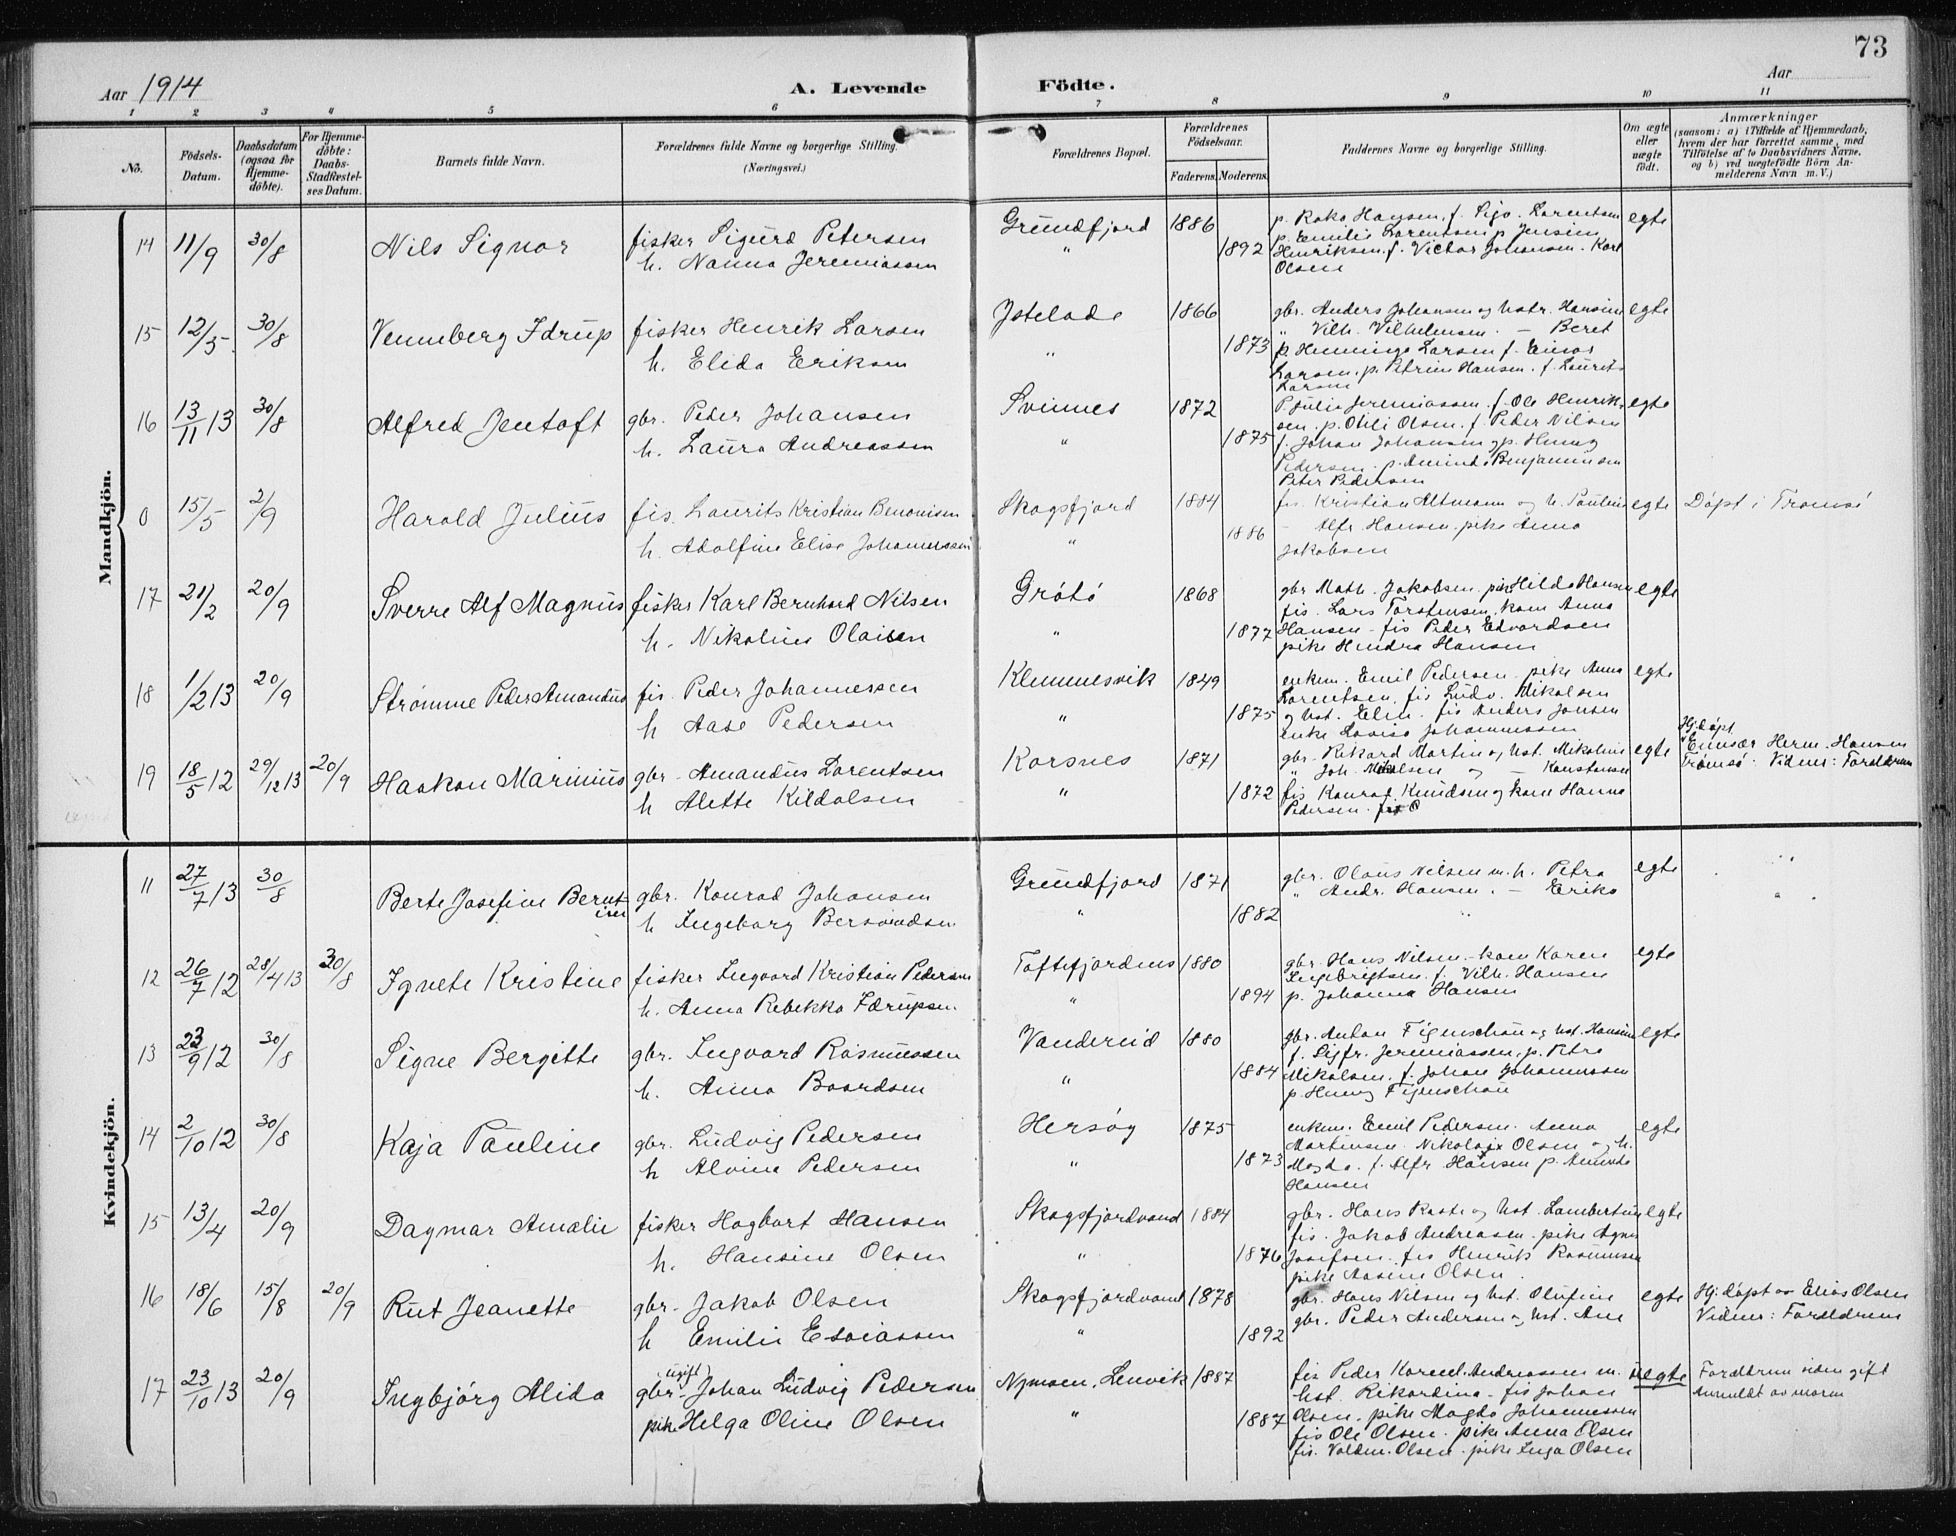 73
Aar 1914
A. Levende
Födte.
Aar
1 2 3 4 5 6 7 8 9 10 11
No.
Födsels-
Datum.
Daabsdatum
(ogsaa for
Hjemme-
döbte).
For Hjemme-
döbte:
Daabs-
Stadfæstel-
ses Datum.
Barnets fulde Navn.
Forældrenes fulde Navne og borgerlige Stilling.
(Næringsvei.)
Forældrenes Bopæl.
Forældrenes
Födselsaar.
Faderens. Moderens.
Faddernes Navne og borgerlige Stilling.
Om ægte
eller
uægte
födt.
Anmærkninger
(saasom: a) i Tilfælde af Hjemmedaab,
hvem der har forrettet samme, med
Tilföielse af to Daabsvidners Navne.
og b) ved uægtefödte Börn An-
melderens Navn m. V.)
Mandkjön.
14 11/9 30/8 Nils Signor fisker Sigurd Petersen Grundfjord 1886 p. Hansen. f. Sigv. Lorentsen egte
h. Nanna Jeremiassen " 1892 p. Emilie Lorentsen p. Jensine
Henriksen. f. Victor Johansen. Karl
Olsen
15 12/5 30/8 Venneberg Idrup fisker Henrik Larsen 1866 gbr. Anders Johansen og hstr. Hansine egte
h. Elida Eriksen " 1873 " Vilh. Vilhelmsen. — Beret
p. Larsen f. Einar
Larsen. p. Petrine Hansen. f. Laurits
Larsen
16 13/11 13 30/8 Alfred Jentoft gbr. Peder Johansen Svinnes 1872 P. Julie Jeremiassen. f. Ole Henrik- egte
h. Laura Andreassen " 1875 sen. p. Otili Olsen. f. Peder Nilsen
f. Johan Johansen og p. Henny
Pedersen. p. Aminda Benjaminsen
Peter Pedersen
0 15/5 2/9 Harald Julius fis. Laurits Kristian Benonisen Skogsfjord 1884 fis. Kristian Altmann og h. Pauline egte Döpt i Tromsö
h. Adolfine Elise Johannessen " 1886 - Alfr. Hansen. pike Anna
Jakobsen
17 21/2 20/9 Sverre Alf Magnus fisker Karl Bernhard Nilsen Grötö 1868 gbr Math. Jakobsen, pike Hilda Hansen egte
h. Nikoline Olaisen " 1877 fis. Lars Torstensen, kone Anna
Hansen - fis Peder Edvardsen
pike Hendra Hansen
18 1/2 13 20/9 Strömme Peder Amandus fis. Peder Johannessen Klemmesvik 1849 enkem. Emil Pedersen. pike Anna egte
h Aase Pedersen " 1875 Lorentsen. fis Ludv. Mikalsen
og hst. Elin. fis Anders Jensen
enke Lovise Johannessen
19 18/5 12 29/12 13 20/9 Haakon Marinius gbr - Amandus Lorentsen Korsnes 1871 gbr. Rikard Martin og hst. Mikoline egte Hj.döpt
h Alette Kildalsen " 1872 " Joh. og — Konstanse
fis Konrad Knudsen og kone Hanna
Pedersen.
av Herm. Hansen
Tromsö. Vidner: Foreldrene
Kvindekjön.
11 27/7 13 30/8 Berte Josefine Bernt- gbr. Konrad Johansen Grundfjord 1871 gbr. Olaus Nilsen m. h. Petra egte
ine h Ingeborg Berswendsen " 1882 " Andr. Hansen. — Erika
12 26/7 12 28/4 13 30/8 Agnete Kristine fisker Ingvard Kristian Pedersen Toftefjordnes 1880 gbr. Hans Nilsen - kone Karen egte
h. Anna Rebekka Færupsen " 1894 Ingebrigtsen. f. Vilh. Hansen
p. Johanna Hansen
13 23/9 12 30/8 Signe Bergitte gbr. Ingvard Rasmussen Vandereid 1880 gbr. Anton Figenschau og hst. Hansine egte
h. Anna Baardsen " 1884 f. Sigfr. Jeremiassen. p. Petra
Mikalsen. f. Johan Johannessen
p. Henny Figenschau
14 2/10 12 30/8 Kaja Pauline gbr. Ludvig Pedersen Hersöy 1875 enkem. Emil Pedersen. Anna egte
h Alvine Pedersen " 1873 Martinsen. Nikolai Olsen og h.
Magda. f. Alfr Hansen p. Aminda
Hansen
15 13/4 20/9 Dagmar Amalie fisker Hagbart Hansen Skogsfjordvand 1884 gbr. Hans Raste og hst. Lambertine egte
h. Hansine Olsen " 1876 fis. Jakob Andreasen. pike Agnes
Josefsen. fis Henrik Rasmussen
pike Aasene Olsen
16 18/6 15/8 20/9 Rut Jeanette gbr. Jakob Olsen Skogsfjordvand 1878 gbr. Hans Nilsen og hst. Olufine egte Hj. döpt av Elias Olsen
h Emilie Esaiassen " 1892 gbr. Peder Andersen og hst. Ane Vidner: Foreldrene
17 23/10 13 20/9 Ingbjörg Alida (ugift)
gbr. Johan Ludvig Pedersen Nymoen, Lenvik 1887 fis Peder Andreassen m. uegte Foreldrene siden gift
pike Helga Oline Olsen " 1887 hst. Rikardina - fis Johan Anmeldt av moren
Olsen. pike Magda Johannessen
fis Ole Olsen. pike Anna Olsen
fis. Valdm. Olsen. pike Inga Olsen